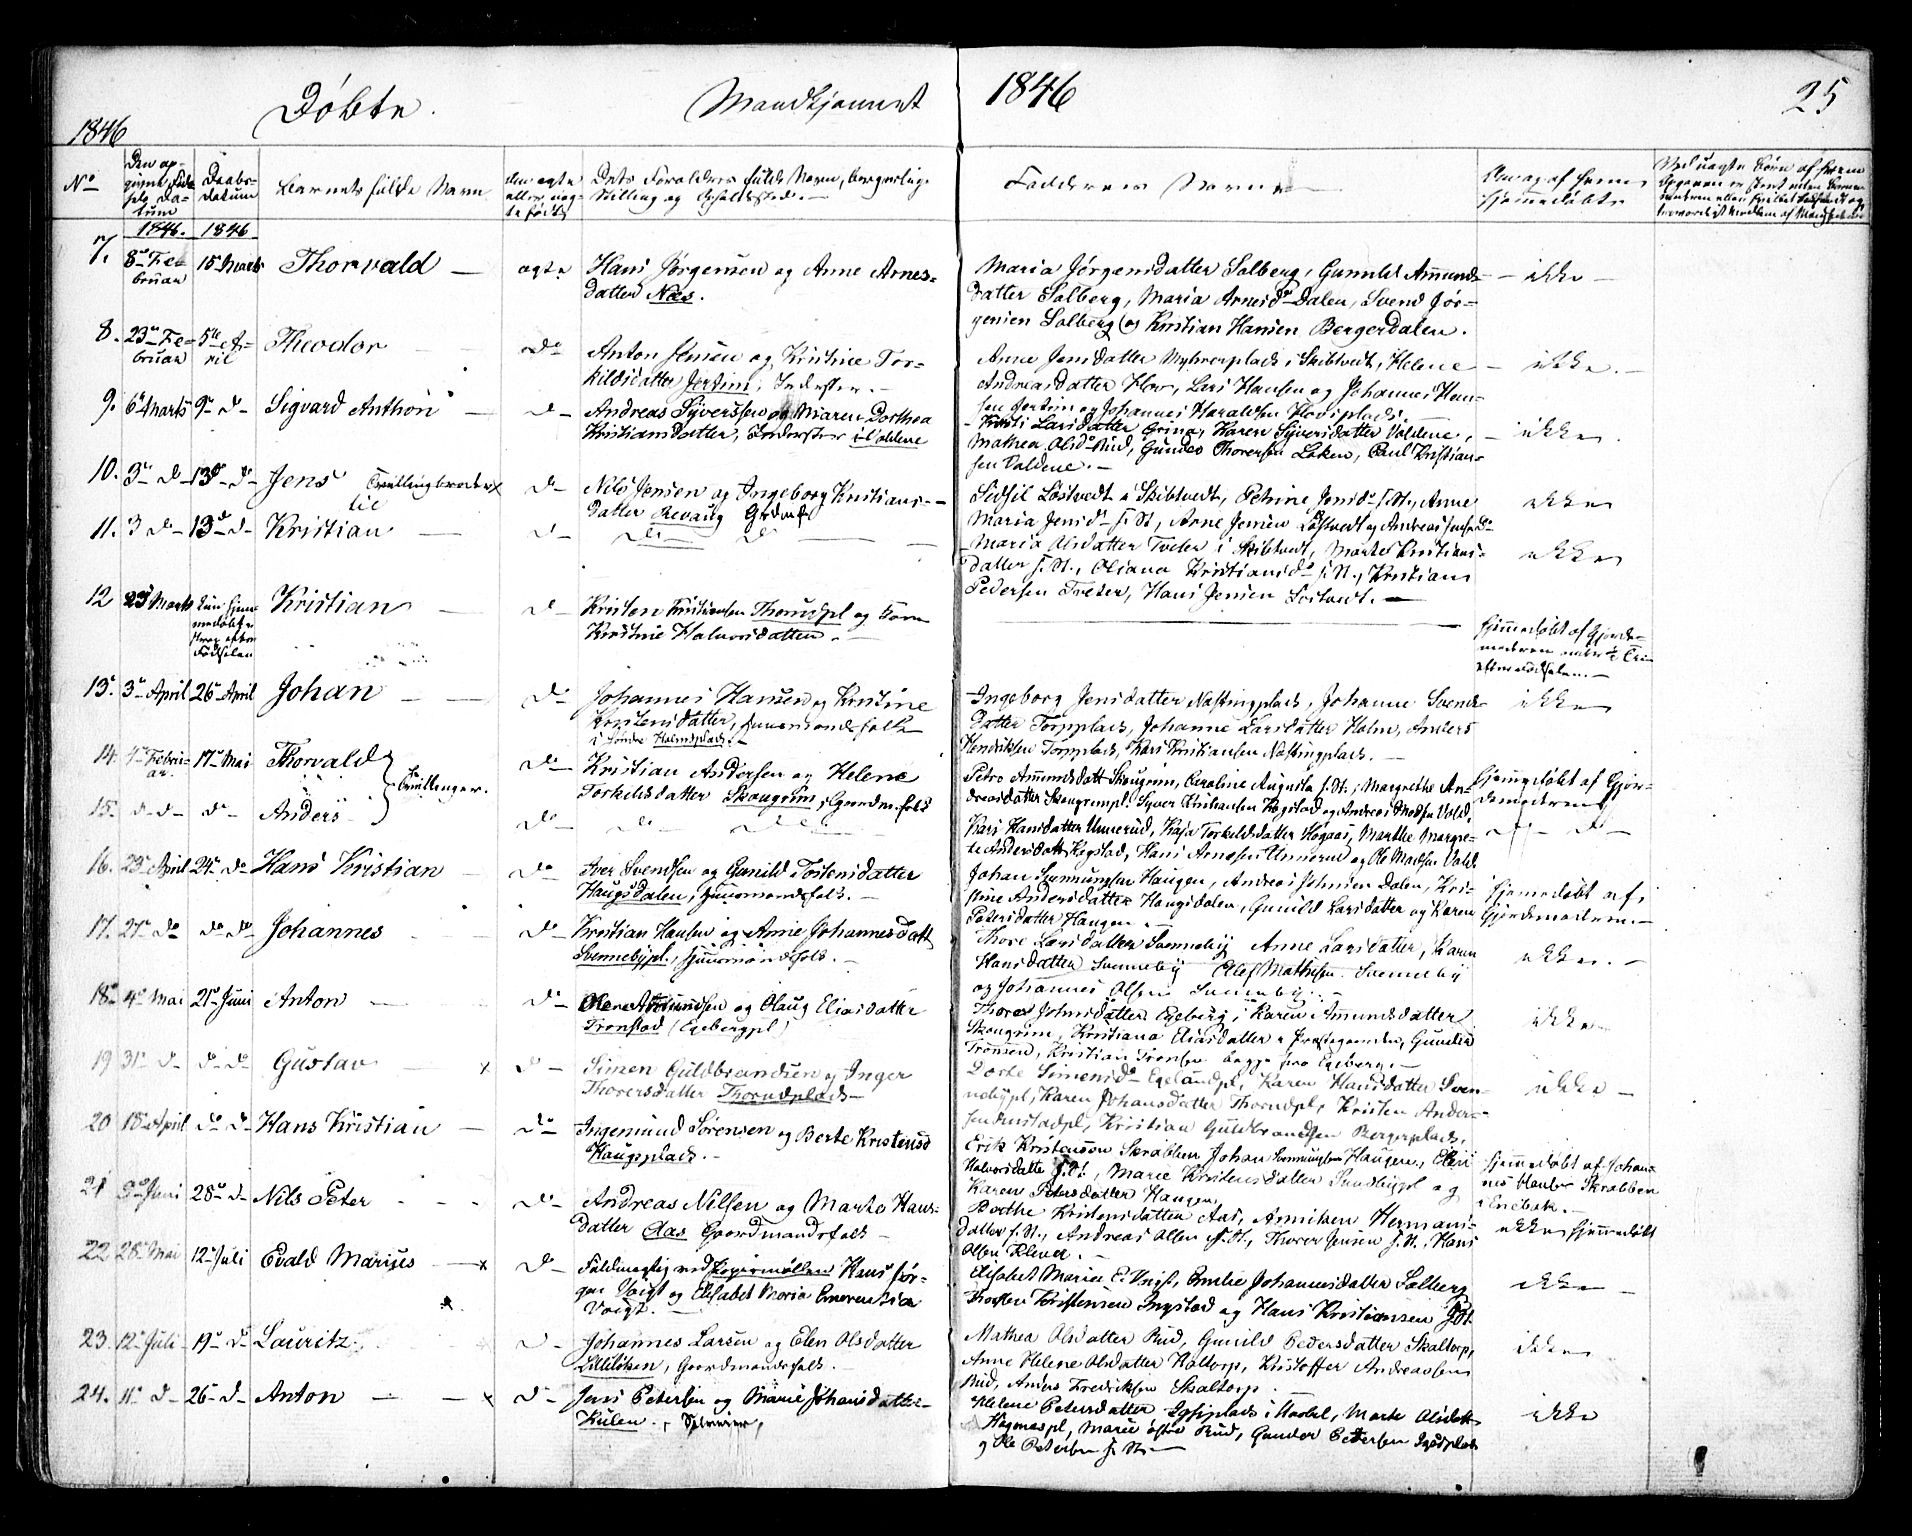 1846 Døbte. Mandkjønnet 1846 25
No Den opgivne Fødsels Datum Daabsdatum Barnets fulde Navn Om ægte eller uægte født Dets Forældres fulde Navn, borgerlige Stilling og Opholdssted. Faddernes Navne hjemmedøbt
1846. 1846
7. 8de Februar 15 Marts Thorvald ægte Hans Jørgensen og Anne Arnesdatter Næs.
Maria Jørgensdatter Solberg, Gunnild Amundsdatter Solberg, Maria Arnesdr Dalen, Svend Jørgensen Solberg og Kristian Hansen Bergerdalen. ikke
8. 23de Februar 5te April Theodor do Anton Jensen og Kristine Torkildsdatter Jørtim, Inderster.
Anne Jensdatter i Skibtvedt, Helene Andreasdatter Hov, Lars Hansen og Johannes Hansen Jørtim og Johannes Haraldsen ikke.
9. 6te Marts 9de do Sigvard Anthon do Andreas Syversen og Maren Dorthea Kristiansdatter, Inderster i Voldene
Larsdatter Grina, Karen Syversdatter Voldene, Mathea Olsdr Rud, Gunder Thoresen Løken, Paul Kristiansen Voldene. ikke.
10. 3de do 13de do Jens Tvillingbroder til do Nils Jensen og Ingeborg Kristiansdatter Revaug Grdmf
Sidsil Løstvedt i Skibtvedt, Petrine Jensdr s. St., Anne Maria Jensdr s. St., Arne Jensen Løstvedt og Andreas Jensen do ikke
11. 3 do 13de do Kristian do do do
Maria Olsdatter Tveter i Skibtvedt, Marte Kristiansdatter s. St., Oliana Kristiansdr s. St., Kristian Pedersen Tveter, Hans Jensen Løstvedt. ikke
12 23de Marts Kun hjemmedøbt strax efter Fødselen Kristian do Kristen Kristiansen Thorudpl og Karen Kristine Halvorsdatter.
hjemmedøbt af Gjordemoderen
13. 3de April 26de April Johan do Johannes Hansen og Kristine Kristensdatter, Huusmandsfolk i Søndre Holmsplads.
Ingeborg Jensdatter Næstingplads, Johanne Svendsdatter Torpplads, Johanne Larsdatter Holm, Anders Hendriksen Torpplads, Lars Kristiansen Næstingplads. ikke
14. 4de Februar. 17de Mai Thorvald Tvillinger. do Kristian Andersen og Helene Torkildsdatter Skougrim, Gaardm.folk
Petra Amundsdatt Skougrim, Caroline Augusta s. St., Margrethe Andreasdatter Skougrimpl, Syver Kristiansen Kogstad og Andreas Madsen Vold, hjemmedøbt af Gjordemoderen
15. do do do Anders do do do
Kari Hansdatter Unnerud, Kaja Torkildsdatter Høgaas, Marthe Margrete Andersdatt Kogstad, Hans Arnesen Unnerud og Ole Madsen Vold. do do
16. 23de April 24de do Hans Kristian do Iver Svendsen og Gunild Tostensdatter Haugsdalen, Huusmandsfolk.
Johan Svenningsen Haugen, Andreas Johnsen Dalen, Kristine Andersdatter Haugsdalen, Gunild Larsdatter og Karen Petersdatter Haugen. hjemmedøbt af Gjordemoderen.
17. 27de do do do Johannes do Kristian Hansen og Anne Johannesdatt Svennebypl., Huusmandsfolk.
Thore Larsdatter Svenneby, Anne Larsdatter, Karen Hansdatter Svenneby, Olef Mathisen Svenneby og Johannes Olsen Svenneby. ikke.
18. 4de Mai 21de Juni Anton do Amundsen og Olaug Eliasdatter Tronstad (Egebergpl)
Thorer Johnsdatter Egeberg, Karen Amundsdatter Skougrim, Kristiana Eliasdatter i Præstegaarden, Gunder Tronsen, Kristian Tronsen begge fra Egeberg. ikke
19 31de do do do Gustav × do Simen Guldbrandsen og Inger Thorersdatter Thorudplads
Dorte Simensdr Egelandpl, Karen Hansdatter Svennebypl, Karen Johansdatter Thorudpl, Kristen Andersen, Kristian Guldbrandsen Bergerplads. ikke
20 18de April do do Hans Kristian do Ingemund Sørensen og Berte Kristensd Haugsplads.
Erik Kristensen Skrabben, Johan Svenningsen Haugen, Eleri Halvorsdatte s. St., Marie Kristensdatter Sundbypl og Karen Petersdatter Haugen, hjemmedøbt af Johannes Skrabben i Enebak.
21 9de Juni 28de do Nils Peter do Andreas Nilsen og Marte Hansdatter Aas Gaardmandsfolk
Berthe Kristensdatter Aas, Anniken Hermansdatter s. St., Andreas Olsen s. St., Thorer Jensen s. St., Hans Olsen Klever. ikke hjemmedøbt
22 28de Mai 12te Juli Evald Marius × do Fuldmægtig ved Hans Jørgen Voigt og Elisabet Maria Emerentia Voigt.
Elisabet Maria E. Voigt, Emelie Johannesdatter Solberg, Thorsten Kristensen Ingstad og Hans Kristiansen ikke
23. 12te Juli 19de do Lauritz do Johannes Larsen og Elen Olsdatter Lilleløken, Gaardmandsfolk.
Mathea Olsdatter Rud, Gunild Pedersdatter Skaltorp, Anne Helene Olsdatter Haltorp, Kristoffer Andreassen Rud, Anders Fredriksen Skaltorp. ikke
24. 11te do 26de do Anton × do Jens Petersen og Marie Johansdatter Kulen.
Helene Petersdatter i Haabel, Marte Olsdatt Hagmaspl, Marie østre Rud, Gunder Pettersen og Ole Petersen s. St. ikke